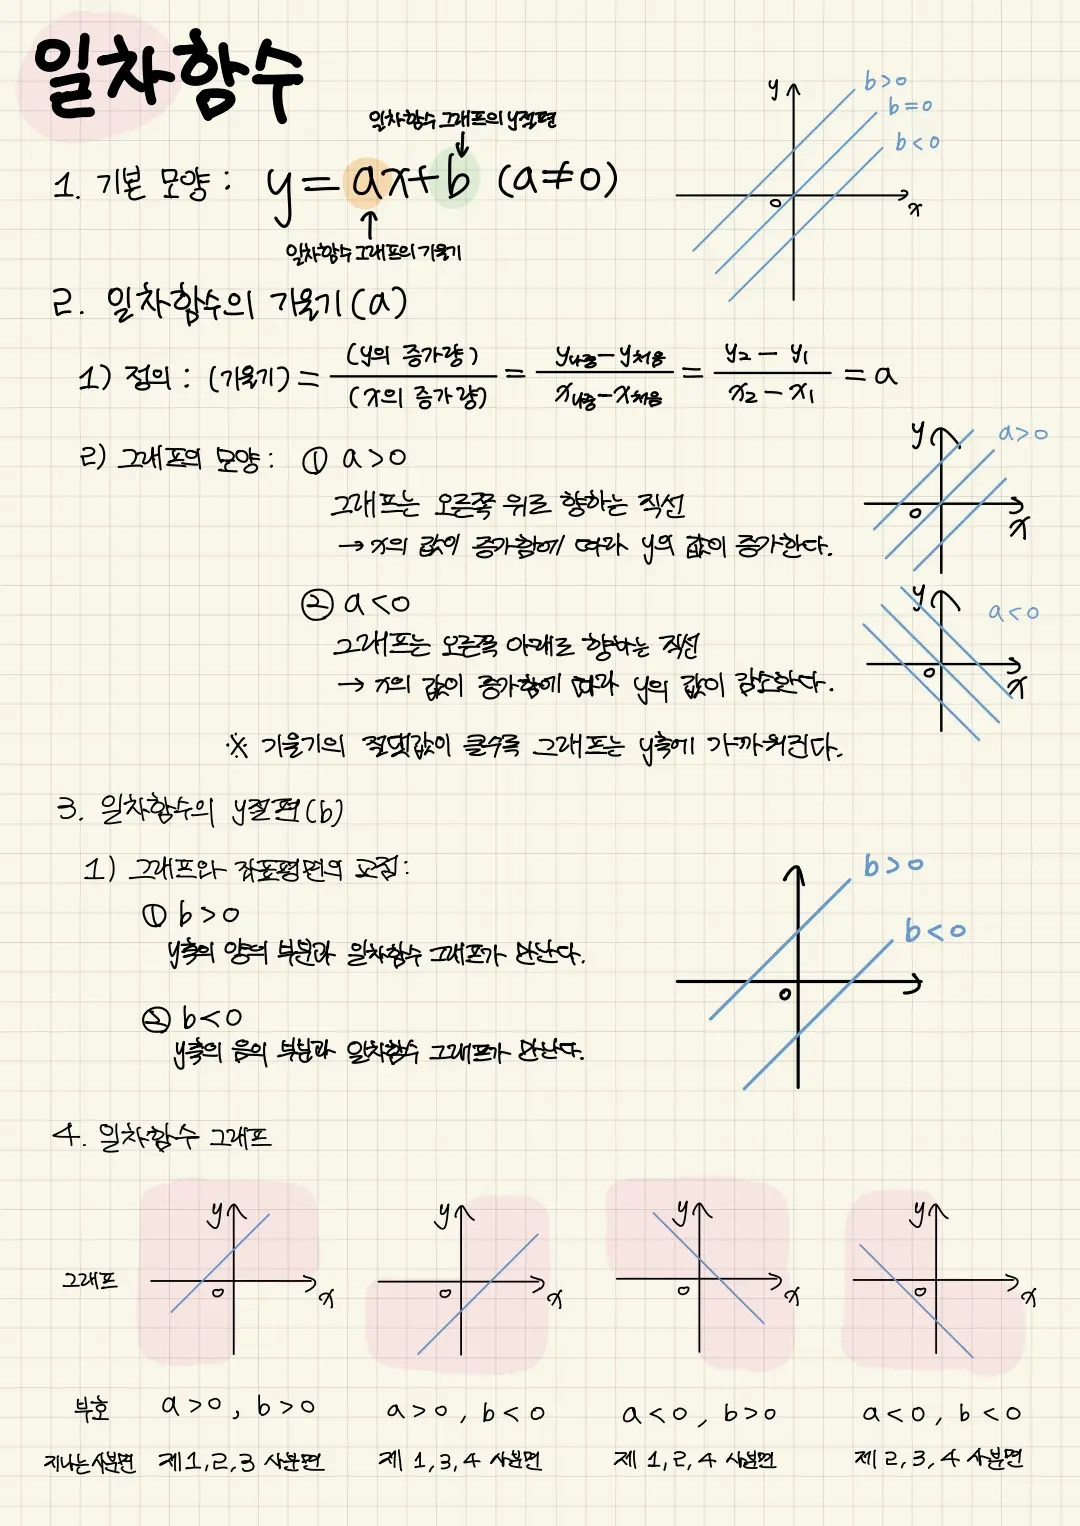 일차함수
일차함수 그래프의 y절편
1. 기본 모양 : y = ax+b (a≠0)
일차함수 그래프의 기울기
y
b>0
b=0
b<0
0
x
2. 일차함수의 기울기(a)
1) 정의 : (기울기) = (y의 증가량) / (x의 증가량) = y나중 - y처음 / x나중 - x처음 = y₂ - y₁ / x₂ - x₁ = a
2) 그래프의 모양 : ① a>0
그래프는 오른쪽 위로 향하는 직선
→ x의 값이 증가함에 따라 y의 값이 증가한다.
y
a>0
0
x
② a<0
그래프는 오른쪽 아래로 향하는 직선
→ x의 값이 증가함에 따라 y의 값이 감소한다.
y
a<0
0
x
※ 기울기의 절댓값이 클수록 그래프는 y축에 가까워진다.
3. 일차함수의 y절편(b)
1) 그래프와 좌표평면의 교점 :
① b>0
y축의 양의 부분과 일차함수 그래프가 만난다.
② b<0
y축의 음의 부분과 일차함수 그래프가 만난다.
b>0
b<0
0
4. 일차함수 그래프
y y y y
그래프
0 x 0 x 0 x 0 x
부호 a>0, b>0 a>0, b<0 a<0, b>0 a<0, b<0
지나는 사분면 제1,2,3 사분면 제 1,3,4 사분면 제 1,2,4 사분면 제 2,3,4 사분면